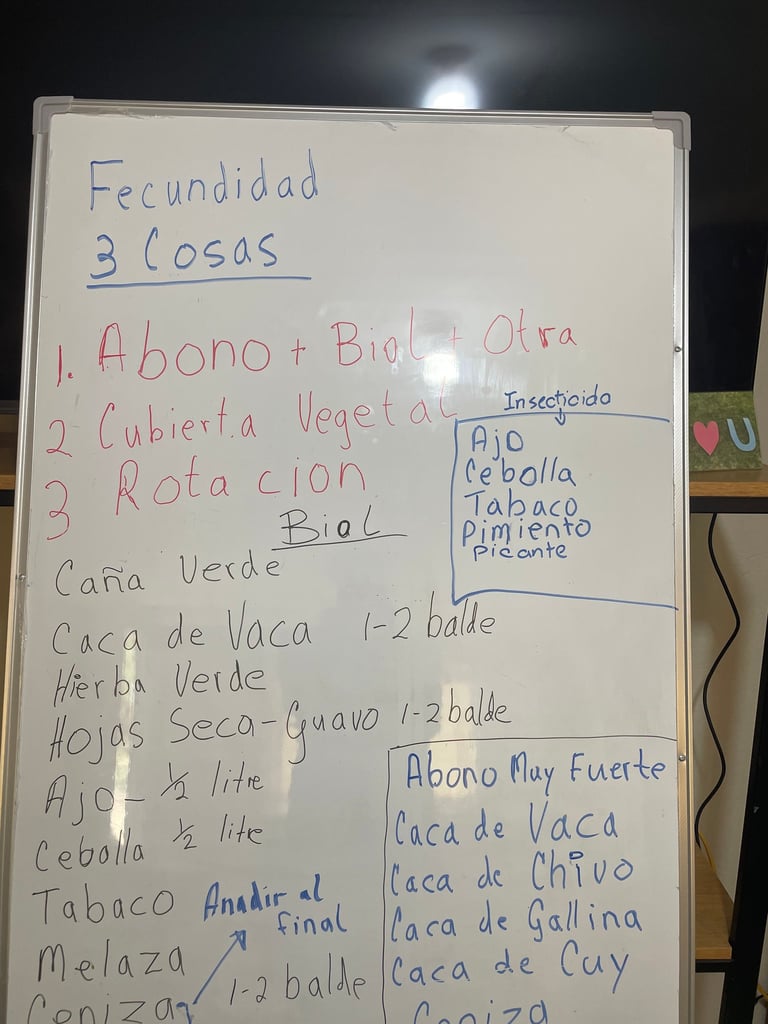 Fecundidad
3 Cosas
1. Abono + Biol + Otra
2 Cubierta Vegetal
3 Rotacion
Insecticido
Ajo
Cebolla
Tabaco
Pimiento
Picante
Biol
Caña Verde
Caca de Vaca 1-2 balde
Hierba Verde
Hojas Seca-Guavo 1-2 balde
Ajo - ½ litre
Cebolla ½ litre
Tabaco
Anadir al
final
Melaza
Ceniza 1-2 balde
Abono Muy Fuerte
Caca de Vaca
Caca de Chivo
Caca de Gallina
Caca de Cuy
Ceniza
U